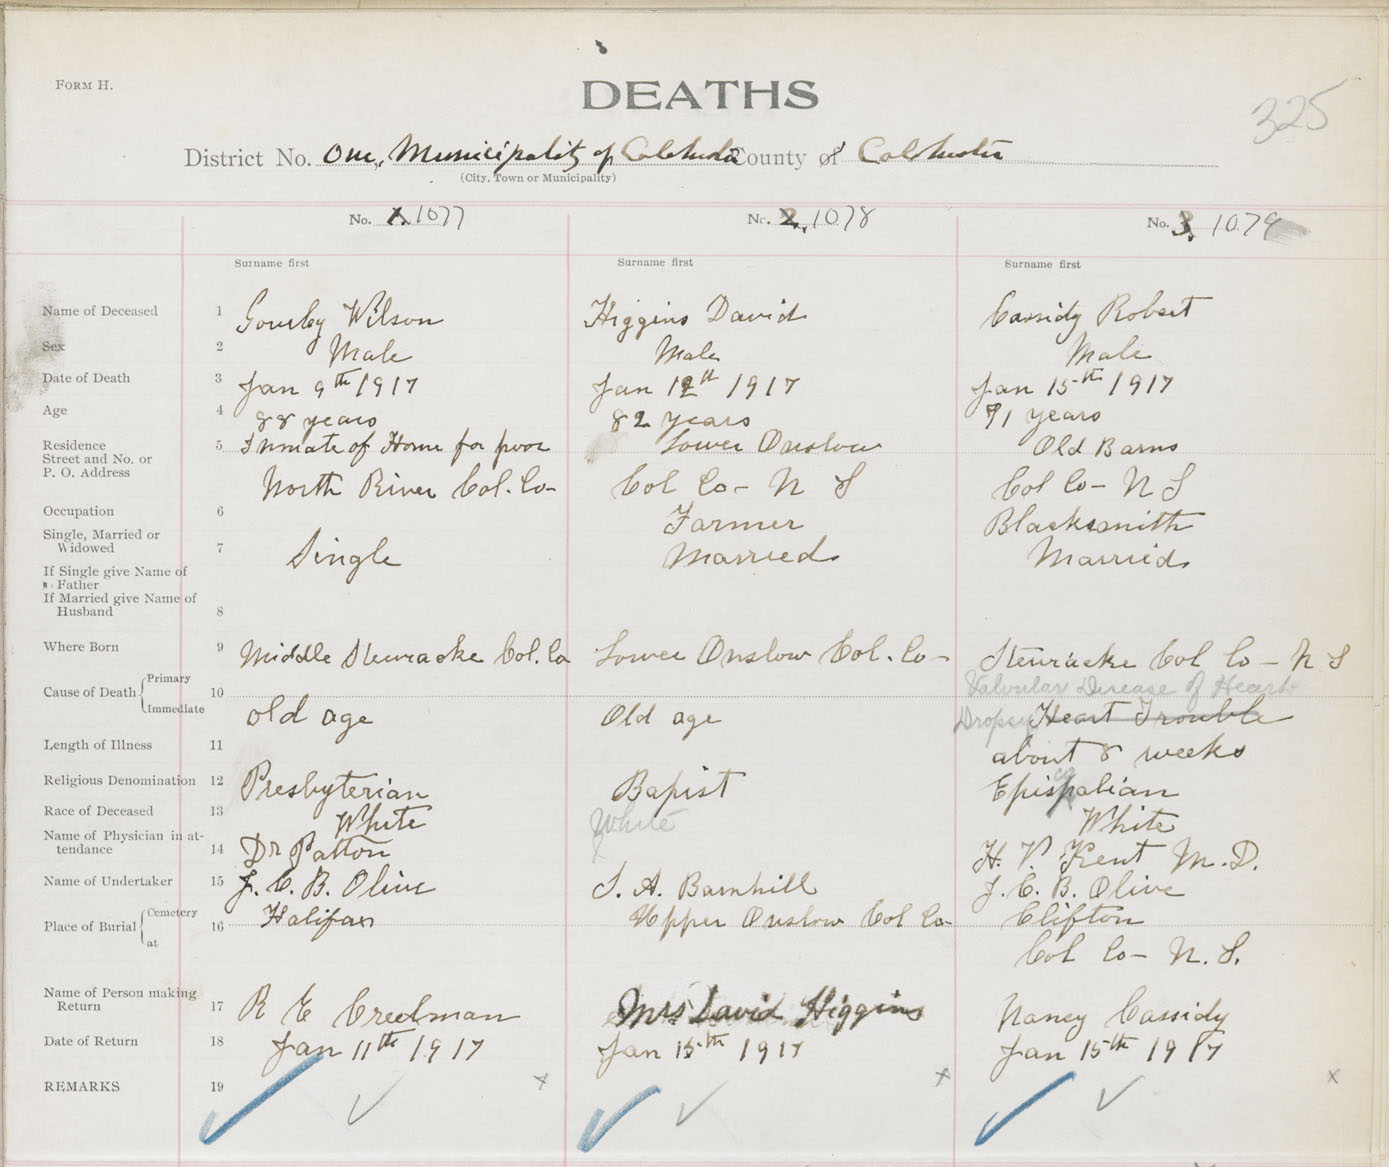 FORM H.
DEATHS
325
District No. One, Municipality of Colchester County of Colchester
(City, Town or Municipality)
No. 1. 1077
No. 2. 1078
No. 3. 1079
Surname first
Surname first
Surname first
Name of Deceased 1 Wilson
Higgins David
Cassidy Robert
Sex 2 Male
Male
Male
Date of Death 3 Jan 9th 1917
Jan 12th 1917
Jan 15th 1917
Age 4 88 years
82 years
71 years
Residence
Street and No. or
P. O. Address
5 Inmate of Home for poor
North River Col. Co-
Lower Onslow
Col Co- N S
Old Barns
Col Co- N S
Occupation 6
Farmer
Blacksmith
Single, Married or
Widowed
7 Single
Married
Married
If Single give Name of
" Father
If Married give Name of
Husband
8
Where Born 9 Middle Stewiacke Col. Co
Lower Onslow Col. Co-
Stewiacke Col Co- N S
Cause of Death Primary
Immediate
10 old age
Old age
Valvular Disease of Heart
Dropsy Heart Trouble
Length of Illness 11
about 8 weeks
Religious Denomination 12 Presbyterian
Bapist
Epispalian
co
Race of Deceased 13 White
White
White
Name of Physician in at-
tendance
14 Dr Patton
H. V. Kent M. D.
Name of Undertaker 15 J. C. B. Olive
S. A. Barnhill
J. C. B. Olive
Place of Burial Cemetery
at
16 Halifax
Upper Onslow Col Co-
Clifton
Col Co- N. S.
Name of Person making
Return
17 R E Creelman
Mrs David Higgins
Nancy Cassidy
Date of Return 18 Jan 11th 1917
Jan 15th 1917
Jan 15th 1917
REMARKS 19
x
x
x